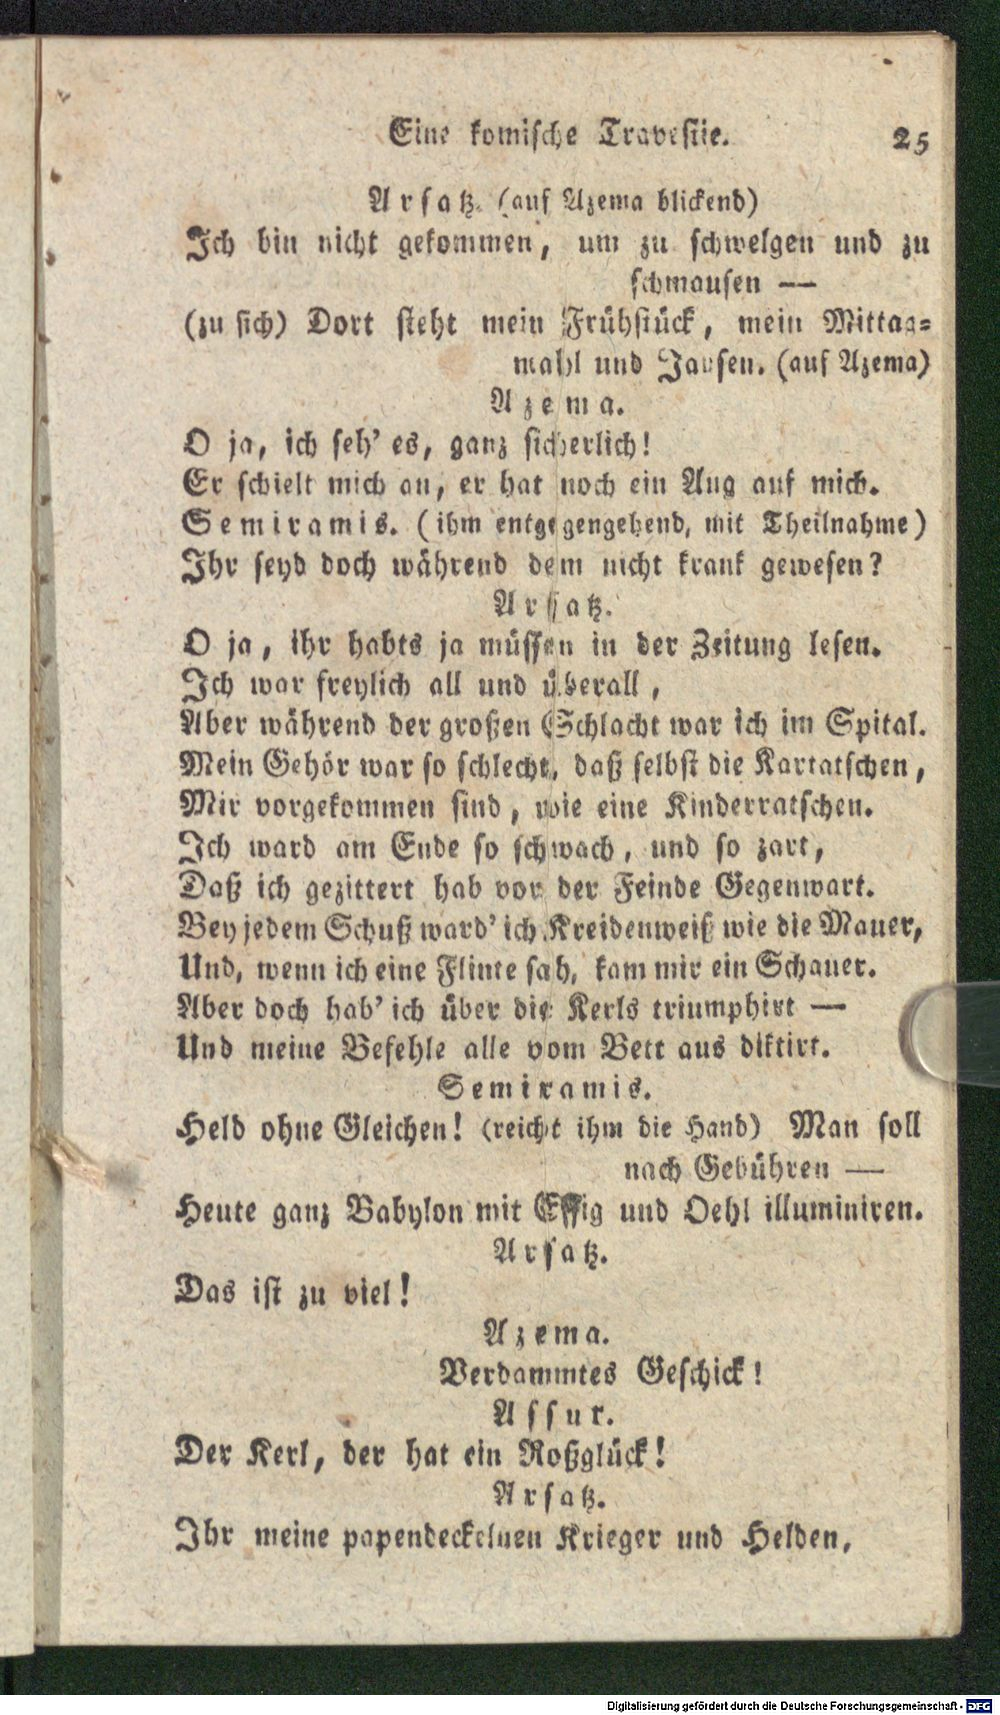 Eine komische Travestie. 25
Arsatz. (auf Azema blickend)
Ich bin nicht gekommen, um zu schwelgen und zu
schmausen —
(zu sich) Dort steht mein Frühstück, mein Mittag=
mahl und Jausen. (auf Azema)
Azema.
O ja, ich seh' es, ganz sicherlich!
Er schielt mich an, er hat noch ein Aug auf mich.
Semiramis. (ihm entgegengehend, mit Theilnahme)
Ihr seyd doch während dem nicht krank gewesen?
Arsatz.
O ja, ihr habts ja müssen in der Zeitung lesen.
Ich war freylich all und überall,
Aber während der großen Schlacht war ich im Spital.
Mein Gehör war so schlecht, daß selbst die Kartatschen,
Mir vorgekommen sind, wie eine Kinderratschen.
Ich ward am Ende so schwach, und so zart,
Daß ich gezittert hab vor der Feinde Gegenwart.
Bey jedem Schuß ward' ich Kreidenweiß wie die Mauer,
Und, wenn ich eine Flinte sah, kam mir ein Schauer.
Aber doch hab' ich über die Kerls triumphirt —
Und meine Befehle alle vom Bett aus diktirt.
Semiramis.
Held ohne Gleichen! (reicht ihm die Hand) Man soll
nach Gebühren —
Heute ganz Babylon mit Essig und Oehl illuminiren.
Arsatz.
Das ist zu viel!
Azema.
Verdammtes Geschick!
Assur.
Der Kerl, der hat ein Roßglück!
Arsatz.
Ihr meine papendeckelnen Krieger und Helden,
Digitalisierung gefördert durch die Deutsche Forschungsgemeinschaft - DFG